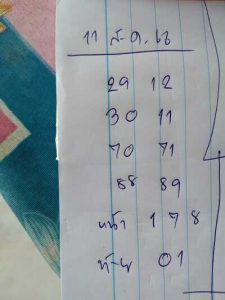 11 ส.ค. 62
29 12
30 11
70 71
88 89
หน้า 1 7 8
01